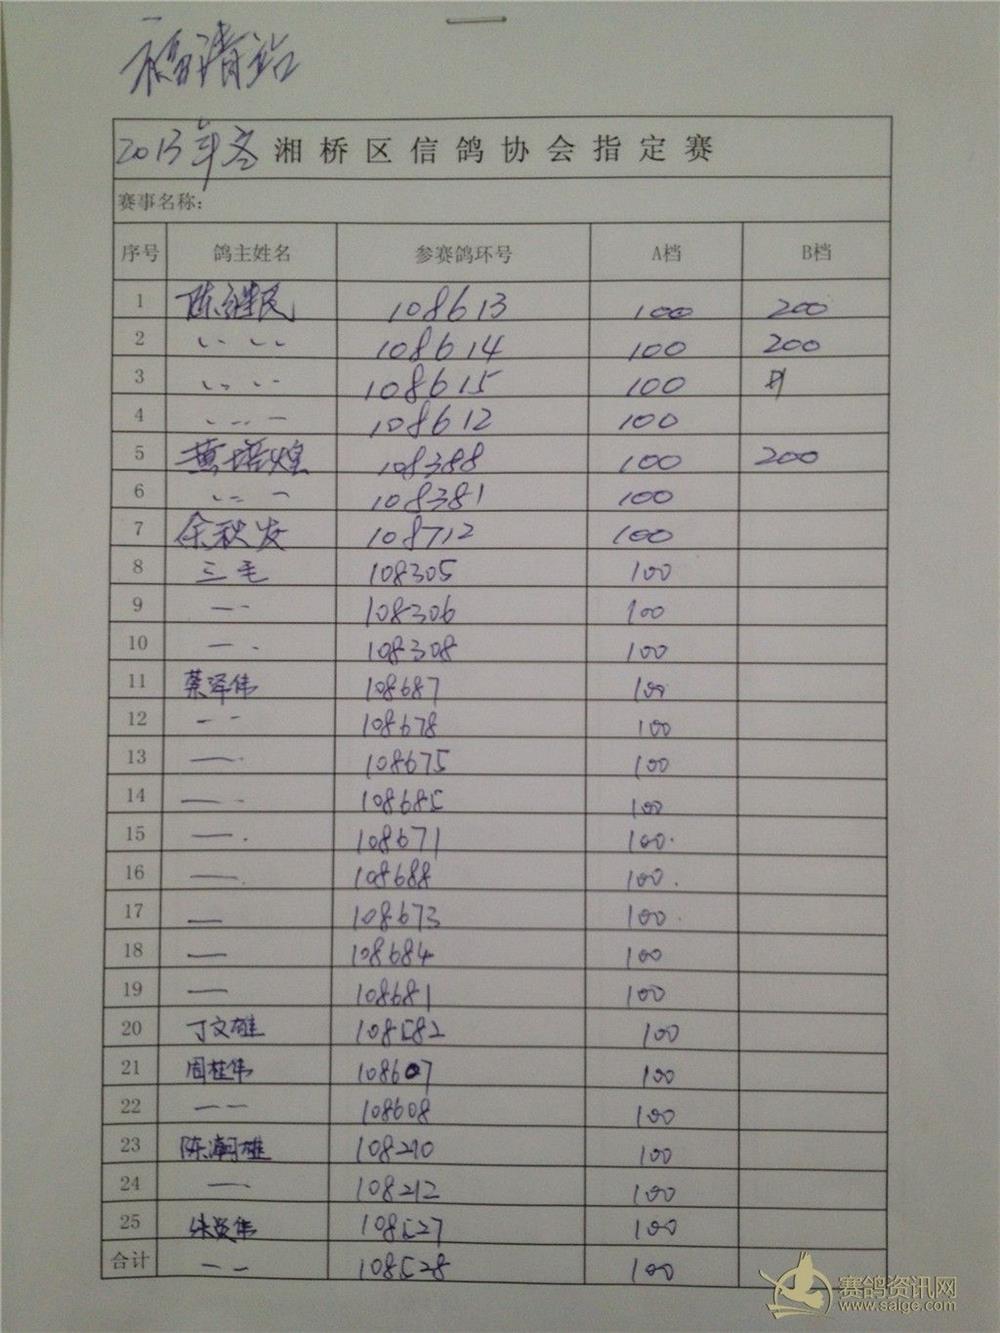 福清站
2013年冬 湘桥区信鸽协会指定赛
赛事名称:
序号 鸽主姓名 参赛鸽环号 A档 B档
1 陈继民 108613 100 200
2 〃 108614 100 200
3 〃 108615 100
4 〃 108612 100
5 黄培煌 108388 100 200
6 〃 108381 100
7 余秋发 108712 100
8 三毛 108305 100
9 — 108306 100
10 — 108308 100
11 蔡泽伟 108687 100
12 — 108678 100
13 — 108675 100
14 — 108685 100
15 — 108671 100
16 — 108688 100
17 — 108673 100
18 — 108684 100
19 — 108681 100
20 丁文雄 108582 100
21 周桂伟 108607 100
22 — 108608 100
23 陈潮雄 108210 100
24 — 108212 100
25 108527 100
合计 — 108528 100
赛鸽资讯网
www.saige.com